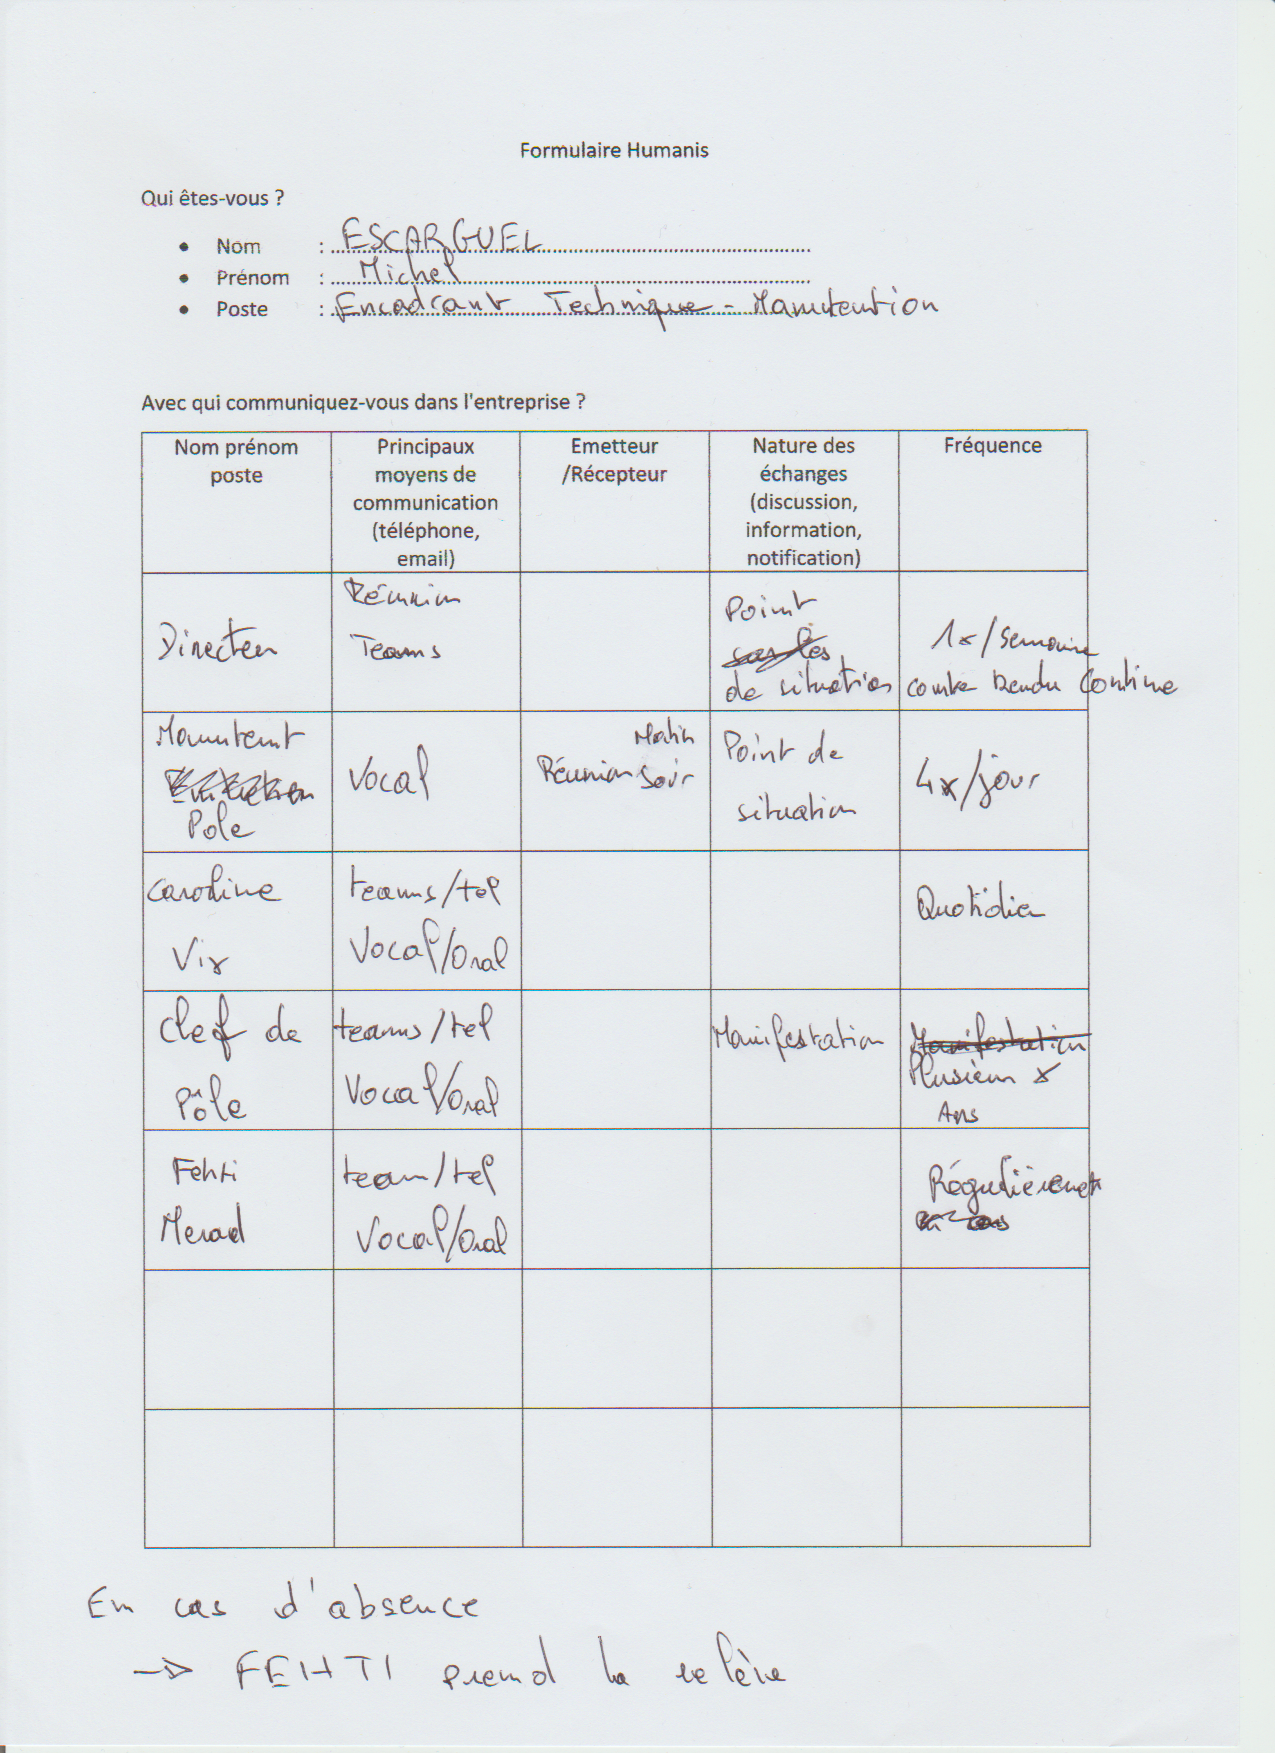 Formulaire Humanis
Qui êtes-vous ?
• Nom : ESCARGUEL
• Prénom : Michel
• Poste : Encadrant Technique - Manutention
Avec qui communiquez-vous dans l'entreprise ?
Nom prénom
poste
Principaux
moyens de
communication
(téléphone,
email)
Emetteur
/Récepteur
Nature des
échanges
(discussion,
information,
notification)
Fréquence
Directeu
Réunion
Teams
Point
de situation
1x/semaine
Rendu Continue
Manutent
Pole
Vocal
Matin
Réunion Soir
Point de
situation
4x/jour
Caroline
Vix
teams/tel
Vocal/Oral
Quotidien
Chef de
Pôle
teams/tel
Vocal/Oral
Manifestation
Manifestation
Plusieurs x
Ans
Fehti
Merad
team/tel
Vocal/Oral
Régulièrement
En cas d'absence
-> FEHTI prend la relève